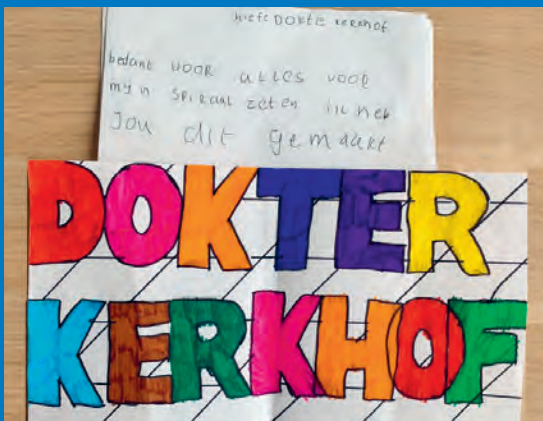 liefe DOKTE kerkhof
bedank VOOR aLLes vooR
mijn SPIRaaL zeten ik heb
Jou dit gemaakt
DOKTER
KERKHOF